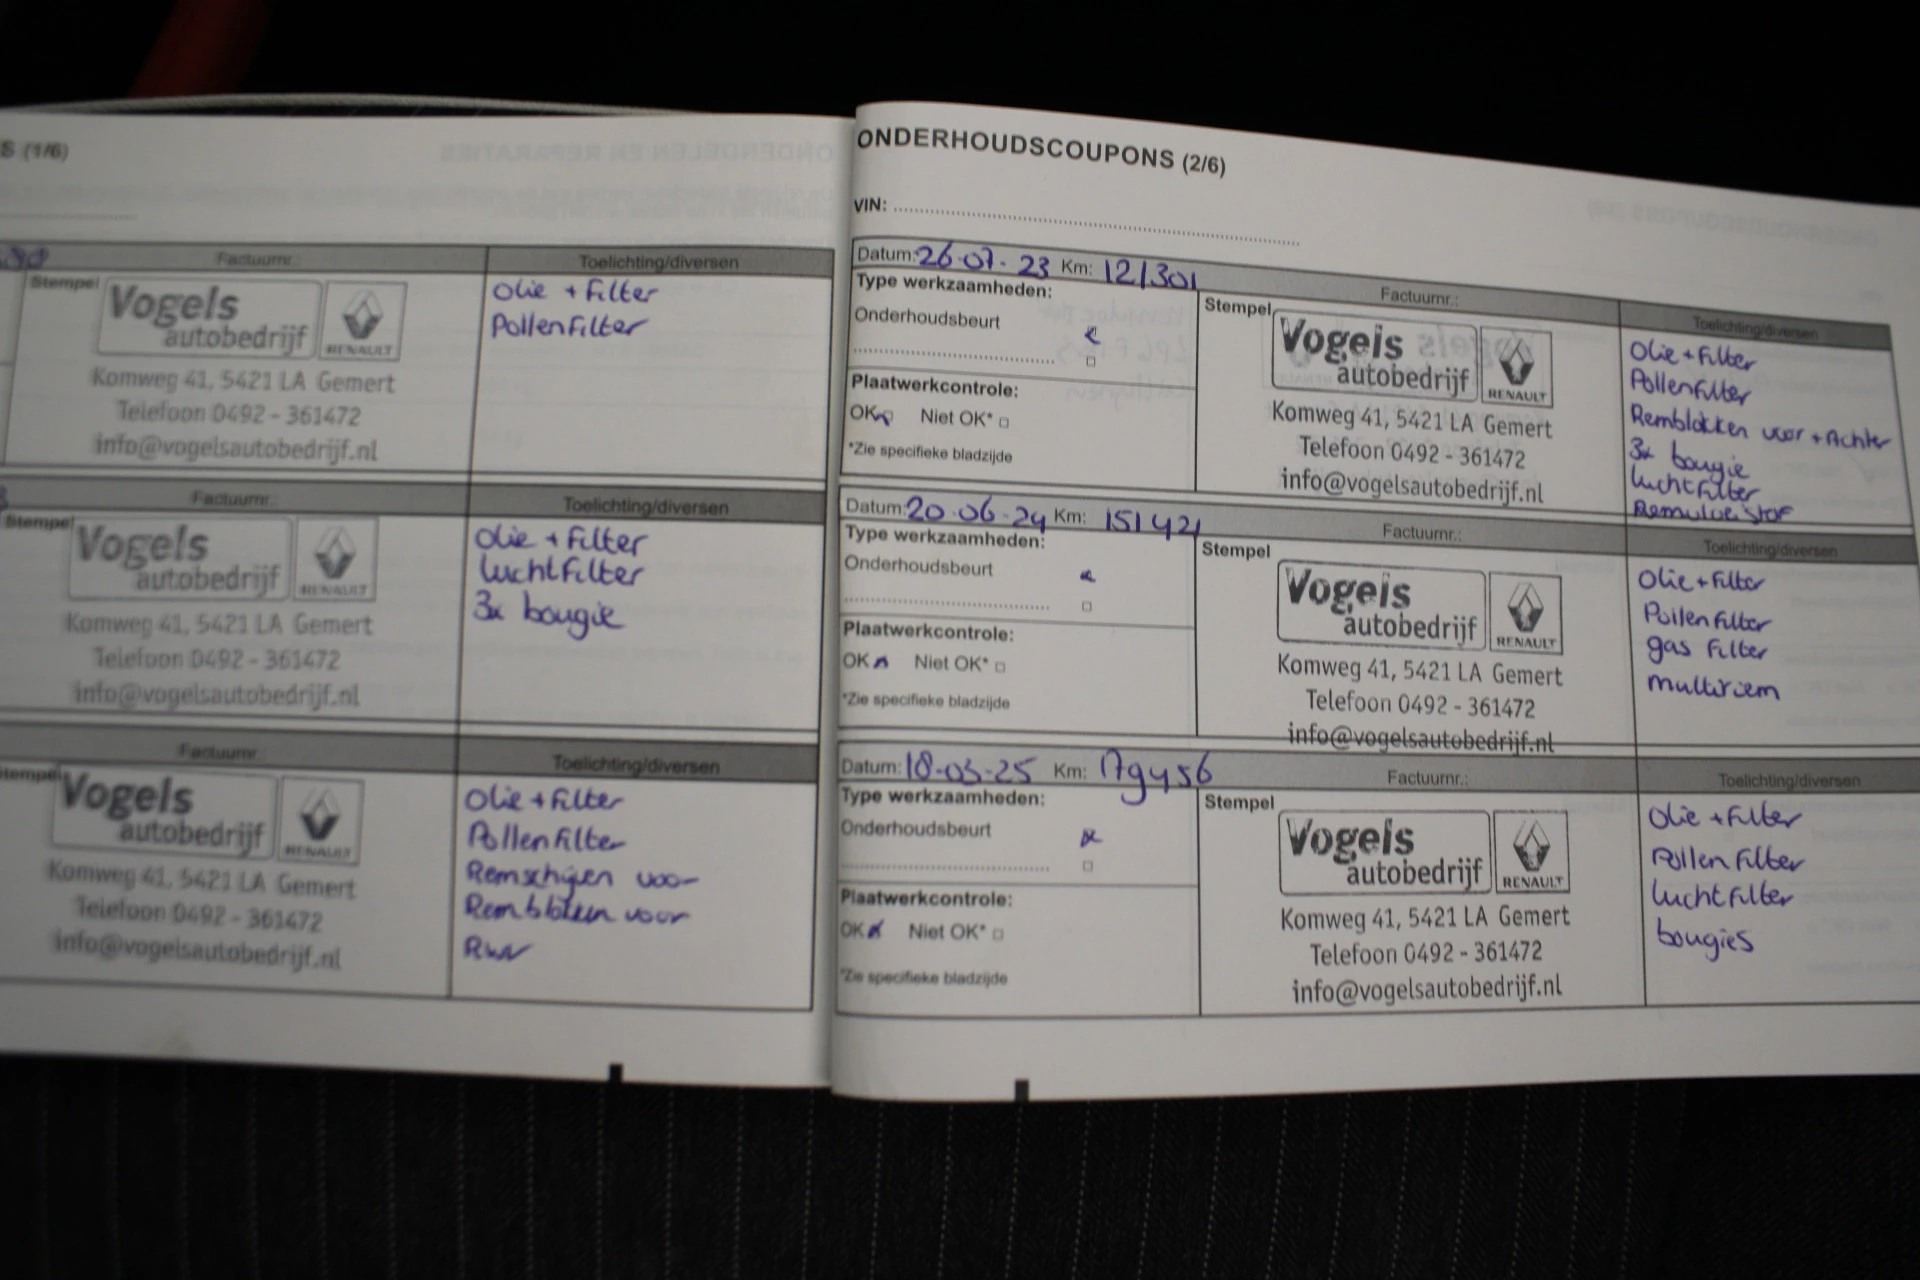 S (1/6)
Factuurnr.:
Toelichting/diversen
Stempel
Vogels
autobedrijf
RENAULT
Komweg 41, 5421 LA Gemert
Telefoon 0492 - 361472
info@vogelsautobedrijf.nl
Olie + Filter
Pollenfilter
Factuurnr.:
Toelichting/diversen
Stempel
Vogels
autobedrijf
RENAULT
Komweg 41, 5421 LA Gemert
Telefoon 0492 - 361472
info@vogelsautobedrijf.nl
Olie + Filter
luchtfilter
3x bougie
Factuurnr.
Toelichting/diversen
Stempel
Vogels
autobedrijf
RENAULT
Komweg 41, 5421 LA Gemert
Telefoon 0492 - 361472
info@vogelsautobedrijf.nl
Olie + Filter
Pollenfilter
Remschijven voor
Remblokken voor
ONDERHOUDSCOUPONS (2/6)
VIN:
Datum: 26-07-23 Km: 121301
Factuurnr.:
Toelichting/diversen
Type werkzaamheden:
Onderhoudsbeurt
Plaatwerkcontrole:
OK Niet OK*
*Zie specifieke bladzijde
Stempel
Vogels
autobedrijf
RENAULT
Komweg 41, 5421 LA Gemert
Telefoon 0492 - 361472
info@vogelsautobedrijf.nl
Olie + Filter
Pollenfilter
Remblokken voor + Achter
3x bougie
luchtfilter
Remvloeistof
Datum: 20-06-24 Km: 151421
Factuurnr.:
Toelichting/diversen
Type werkzaamheden:
Onderhoudsbeurt
Plaatwerkcontrole:
OK Niet OK*
*Zie specifieke bladzijde
Stempel
Vogels
autobedrijf
RENAULT
Komweg 41, 5421 LA Gemert
Telefoon 0492 - 361472
info@vogelsautobedrijf.nl
Olie + Filter
Pollenfilter
gas Filter
multiriem
Datum: 18-03-25 Km: 179456
Factuurnr.:
Toelichting/diversen
Type werkzaamheden:
Onderhoudsbeurt
Plaatwerkcontrole:
OK Niet OK*
*Zie specifieke bladzijde
Stempel
Vogels
autobedrijf
RENAULT
Komweg 41, 5421 LA Gemert
Telefoon 0492 - 361472
info@vogelsautobedrijf.nl
Olie + Filter
Pollen Filter
luchtfilter
bougies